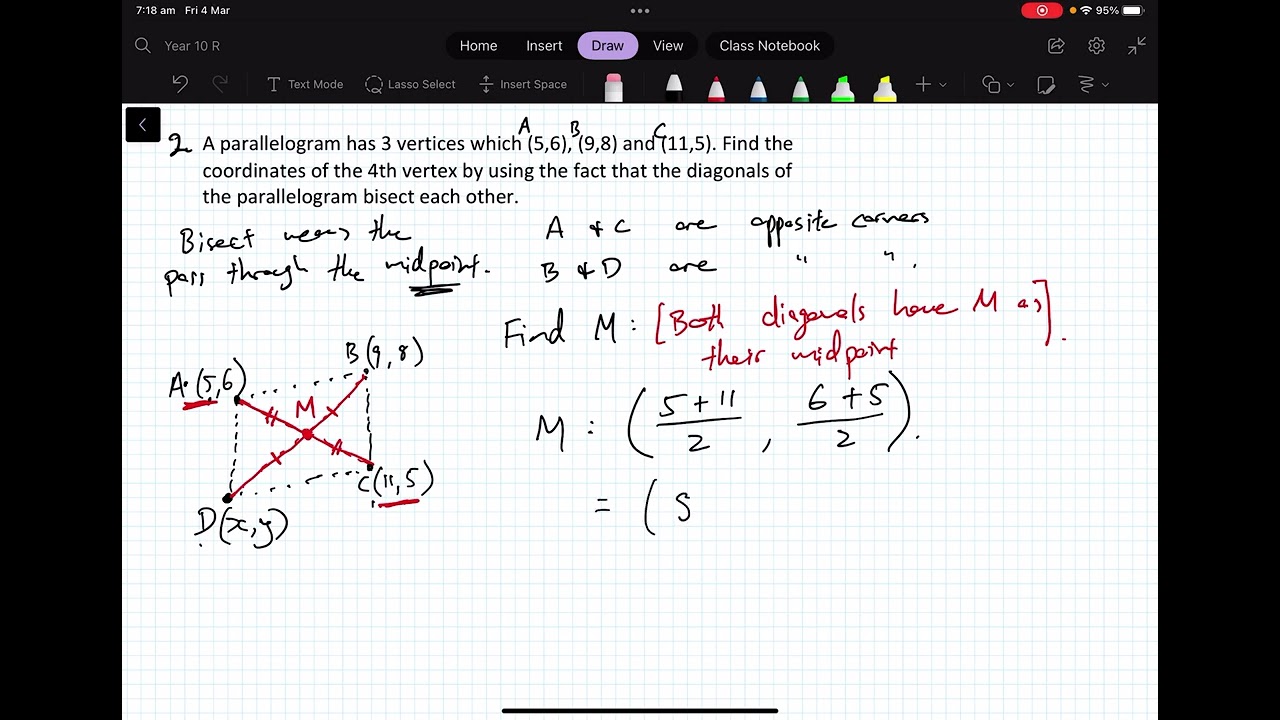 7:18 am Fri 4 Mar
95%
Year 10 R
Home Insert Draw View Class Notebook
Text Mode Lasso Select Insert Space
A B C
2 A parallelogram has 3 vertices which (5,6), (9,8) and (11,5). Find the
coordinates of the 4th vertex by using the fact that the diagonals of
the parallelogram bisect each other.
Bisect means the
pass through the midpoint.
A & C are opposite corners
B & D are " " .
Find M : [Both diagonals have M as
their midpoint].
B (9, 8)
A (5,6)
M
C (11, 5)
D (x, y)
M : ( 5 + 11 / 2 , 6 + 5 / 2 ) .
= ( 8